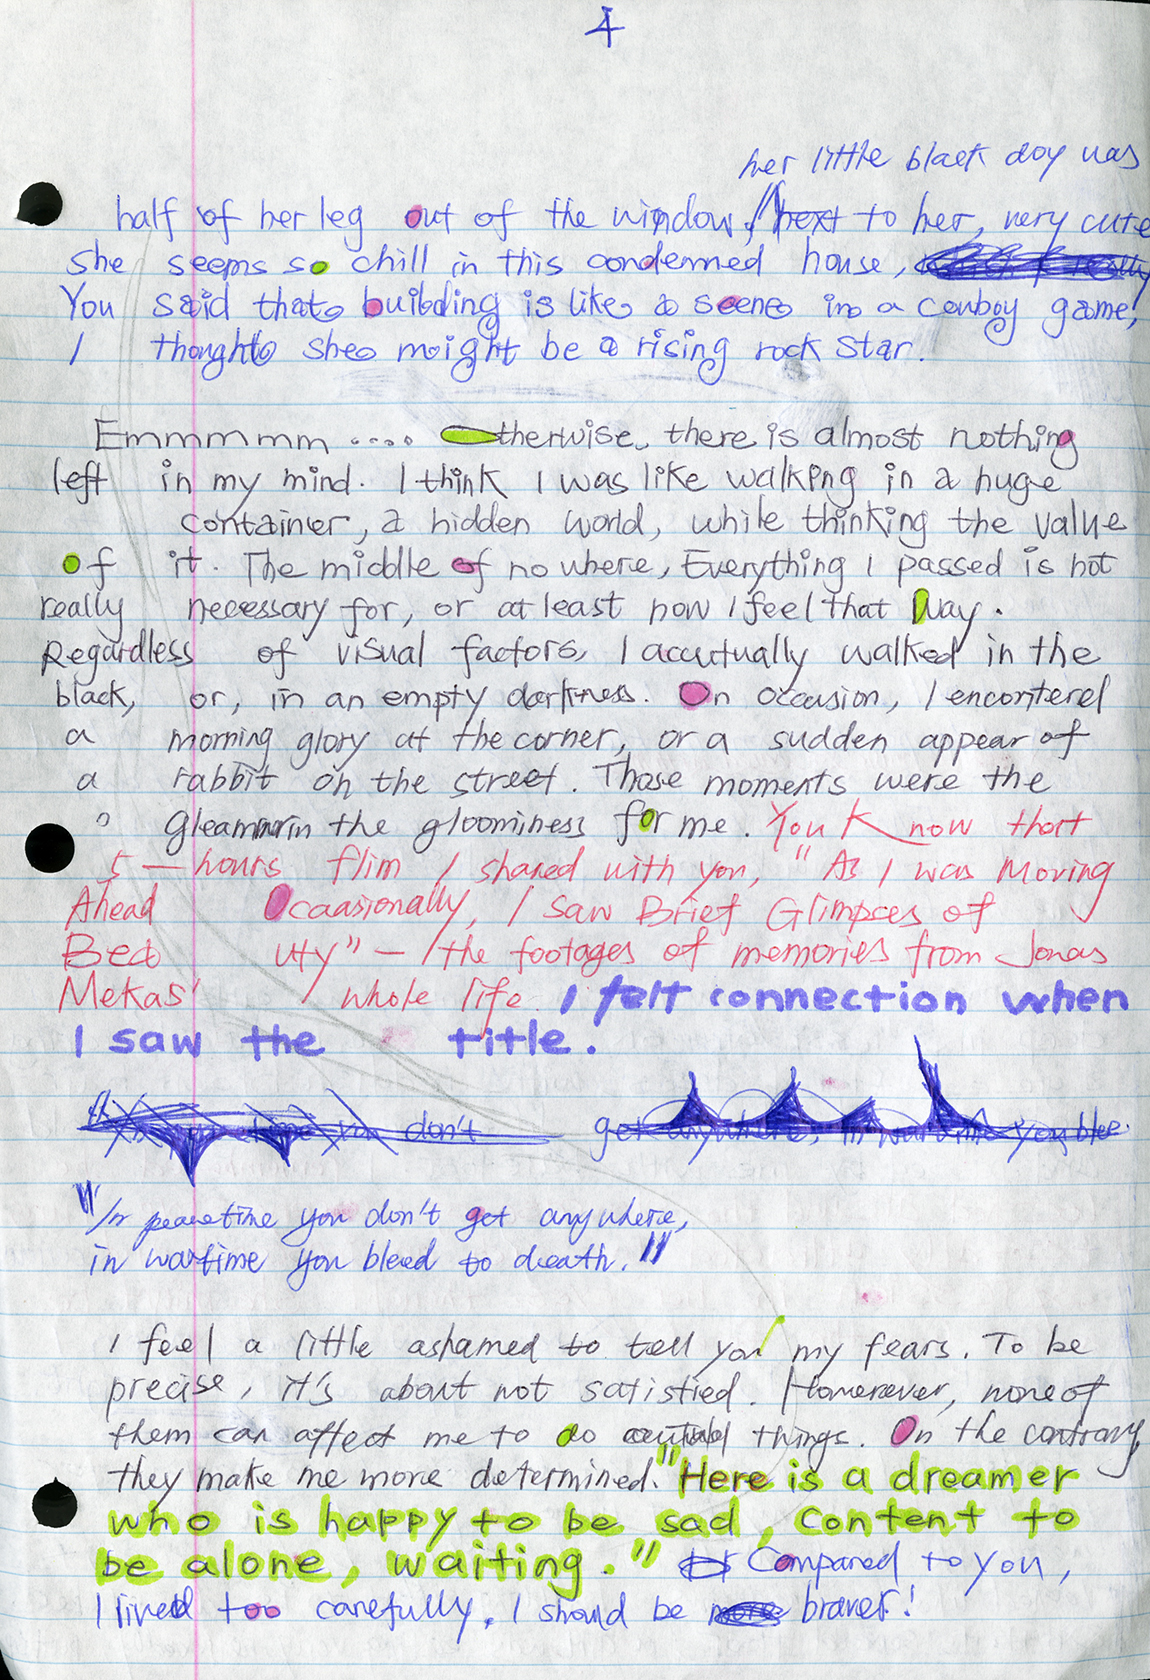 4
her little black dog was
half of her leg out of the window, next to her, very cute
she seems so chill in this condemned house,
You said that building is like a scene in a cowboy game!
I thought she might be a rising rock star.
Emmmmmm .... Otherwise, there is almost nothing
left in my mind. I think I was like walking in a huge
container, a hidden world, while thinking the value
of it. The middle of no where, Everything I passed is not
really necessary for, or at least now I feel that way.
Regardless of visual factors, I accutually walked in the
black, or, in an empty darkness. On occasion, I enconterel
a morning glory at the corner, or a sudden appear of
a rabbit on the street. Those moments were the
gleam in the gloominess for me. You Know thart
5-hours flim I shared with you, "As I was Moving
Ahead Ocaasionally, I Saw Brief Glimpces of
Bea uty" – the footages of memories from Jonas
Mekas' whole life. I felt connection when
I saw the title.
you don't get anywhere, in wartime you blee
"In peacetime you don't get anywhere,
in wartime you bleed to death."
I feel a little ashamed to tell you my fears. To be
precise, it's about not satistied. Homerever, none of
them can affect me to do things. On the contrary,
they make me more determined. "Here is a dreamer
who is happy to be sad, content to
be alone, waiting." Compared to you,
I lived too carefully. I should be braver!